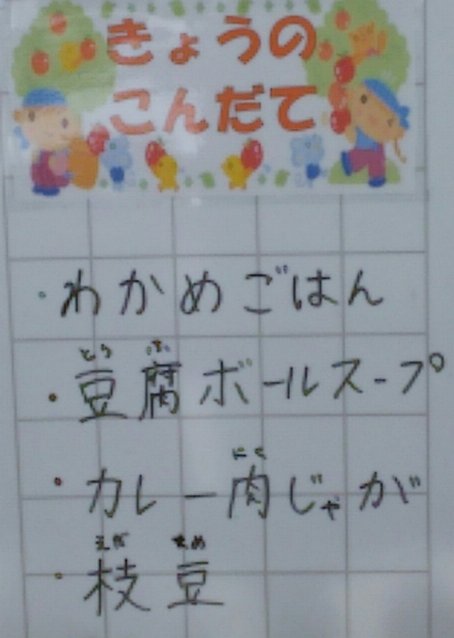 きょうの
こんだて
・わかめごはん
・豆腐ボールスープ
・カレー肉じゃが
・枝豆